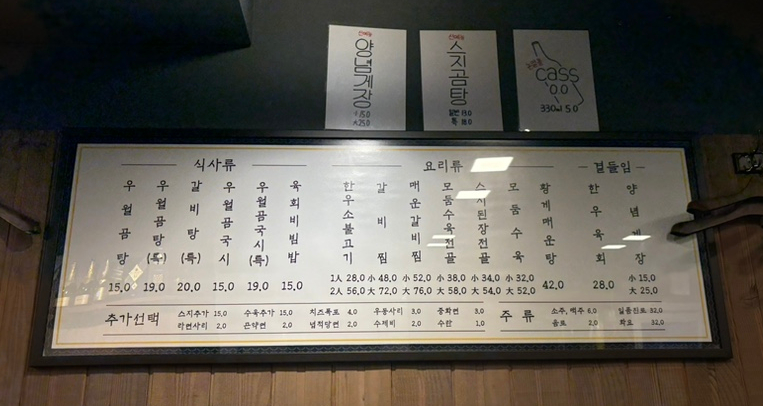 신메뉴
양념게장
小 15.0
大 25.0
신메뉴
스지곰탕
일반 13.0
특 18.0
cass
0.0
330ml 5.0
식사류
우월곰탕 15.0
우월곰탕(특) 19.0
갈비탕(특) 20.0
우월곰국시 15.0
우월곰국시(특) 19.0
육회비빔밥 15.0
요리류
한우소불고기 1人 28.0 2人 56.0
갈비찜 小 48.0 大 72.0
매운갈비찜 小 52.0 大 76.0
모듬수육전골 小 38.0 大 58.0
스지된장전골 小 34.0 大 54.0
모듬수육 小 32.0 大 52.0
황게매운탕 42.0
곁들임
한우육회 28.0
양념게장 小 15.0 大 25.0
추가선택
스지추가 15.0 수육추가 15.0 치즈폭포 4.0 우동사리 3.0 중화면 3.0
라면사리 2.0 곤약면 2.0 넓적당면 2.0 수제비 2.0 수란 1.0
주류
소주, 맥주 6.0 일품진로 32.0
음료 2.0 화요 32.0